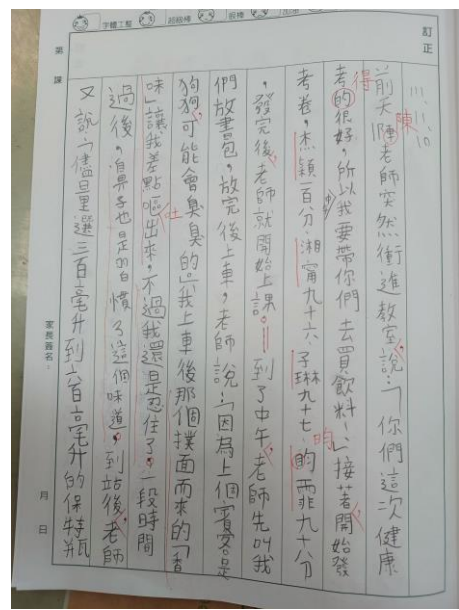 字體工整 超級棒 很棒
訂正
第 課
111.11.10
前天陣老師突然衝進教室說:「你們這次健康
陳
考的很好,所以我要帶你們去買飲料~」接著開始發
得
考卷,杰穎一百分、湘甯九十六、子琳九十七、昀霏九十八分
昀
。發完後,老師就開始上課。到了中午,老師先叫我
們放書包,放完後上車,老師說:「因為上個賓客是
狗狗,可能會臭臭的。」我上車後那個撲面而來的「香
味」讓我差點嘔出來,不過我還是忍住了。一段時間
吐
過後,鼻子也是習慣了這個味道。到站後,老師
又說:「儘量選三百毫升到六百毫升的保特瓶
家長簽名:
月 日